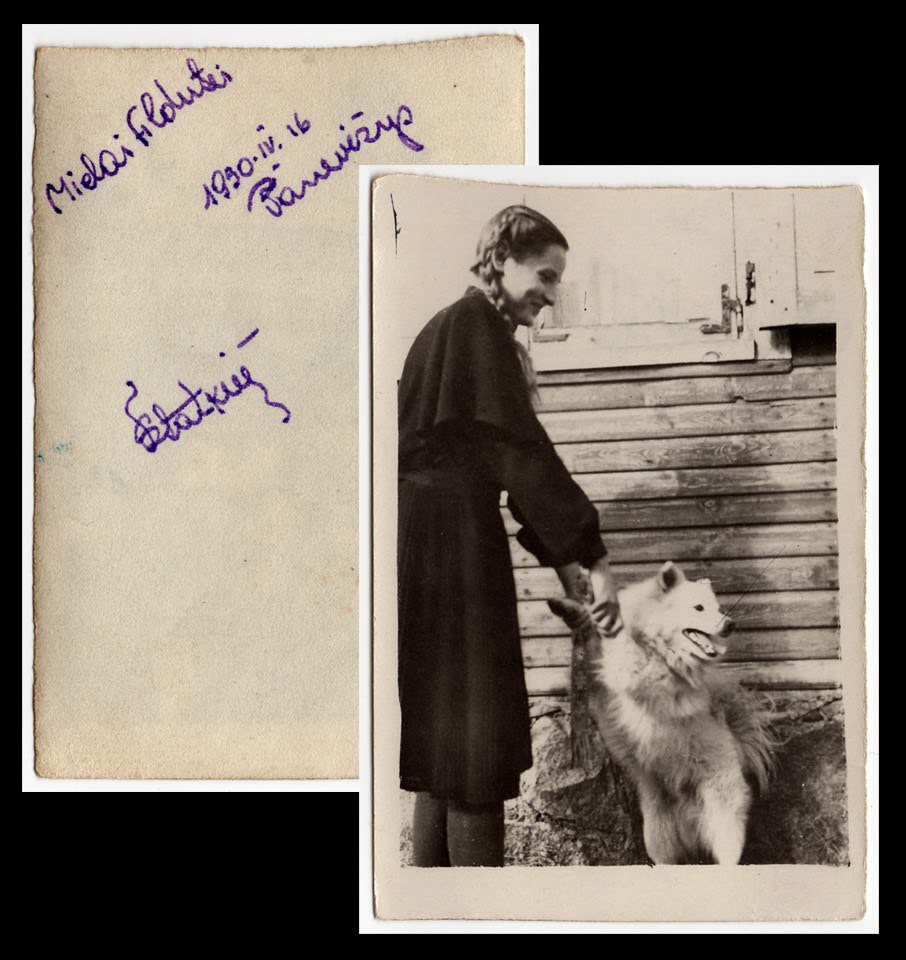 Mielai Fildutei
1930.IV.16
Panevėžys